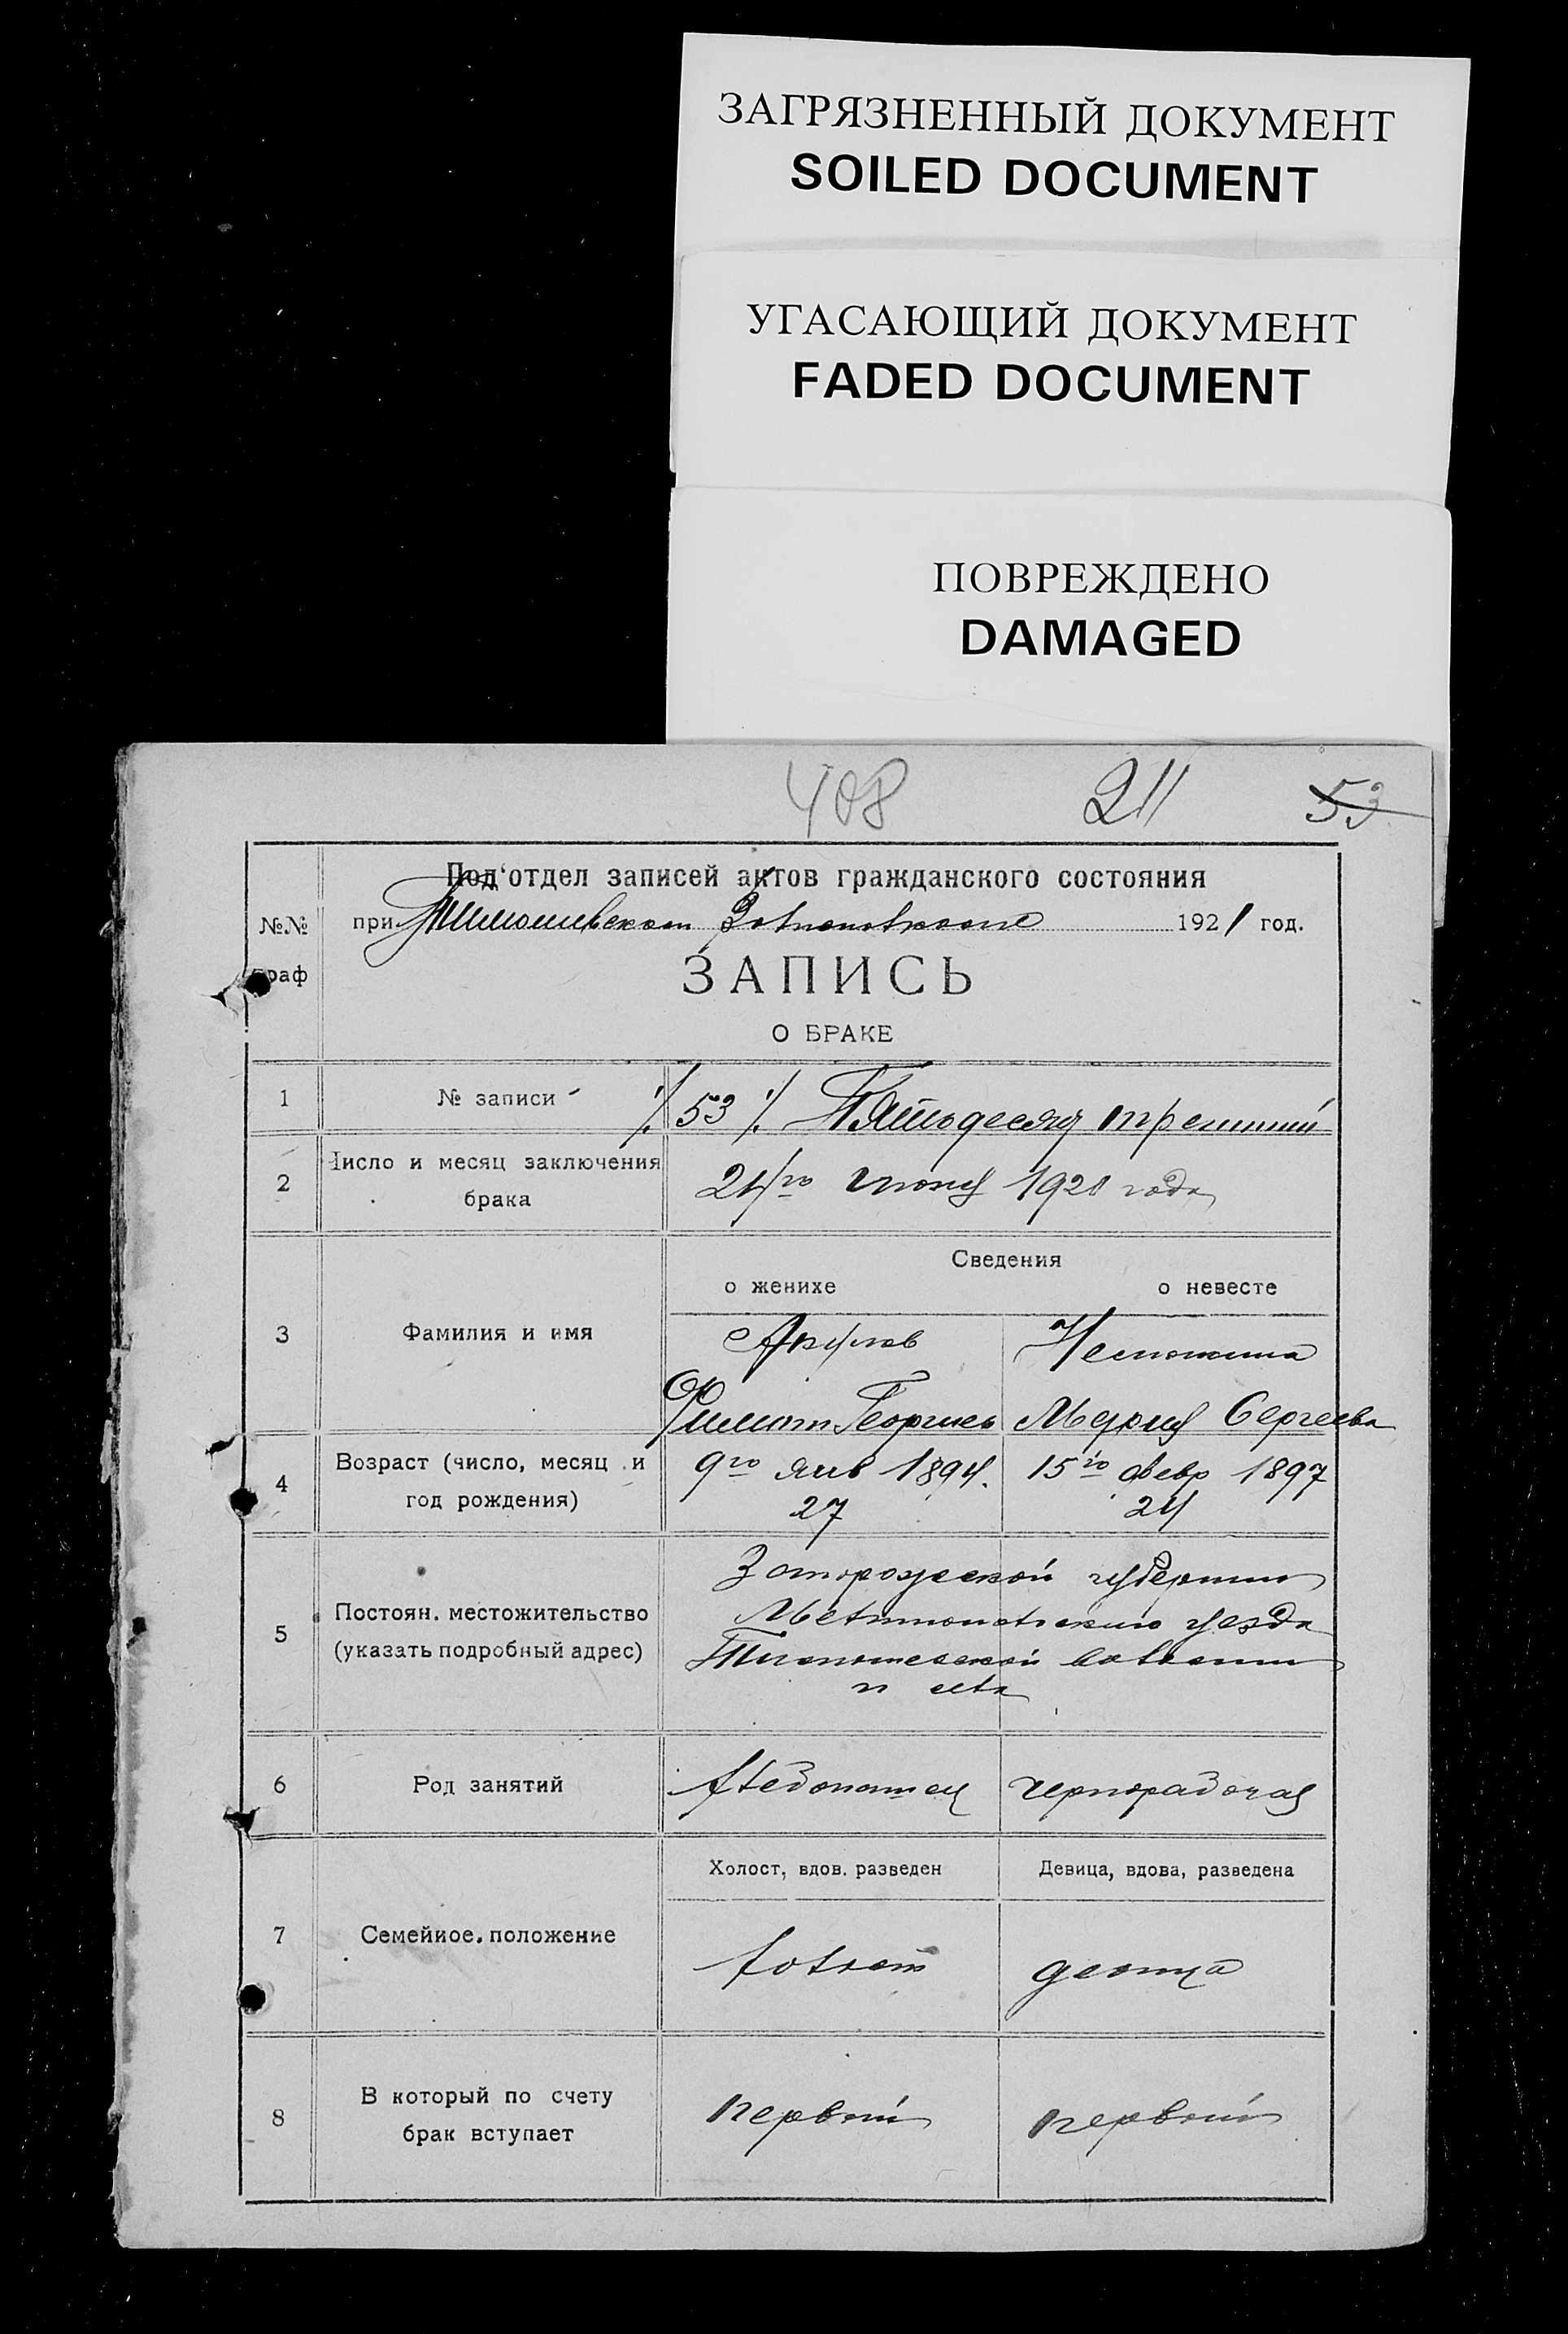 ЗАГРЯЗНЕННЫЙ ДОКУМЕНТ
SOILED DOCUMENT
УГАСАЮЩИЙ ДОКУМЕНТ
FADED DOCUMENT
ПОВРЕЖДЕНО
DAMAGED
408 211 53
Под'отдел записей актов гражданского состояния
№№ при 1921 год.
граф
ЗАПИСЬ
О БРАКЕ
1 № записи 53 Пятьдесяд третий
2 Число и месяц заключения
брака
24го июня 1921 года
Сведения
о женихе о невесте
3 Фамилия и имя
Филипп Георгиев Мария Сергеева
4 Возраст (число, месяц и
год рождения)
9го янв 1894. 15го февр 1897
27 24
5 Постоян. местожительство
(указать подробный адрес)
Запорожской губернии
Мелитопольскаго уезда
волости
и села
6 Род занятий Хлебопашец чернорабочая
Холост, вдов. разведен Девица, вдова, разведена
7 Семейное положение холост девица
8 В который по счету
брак вступает
первый первый